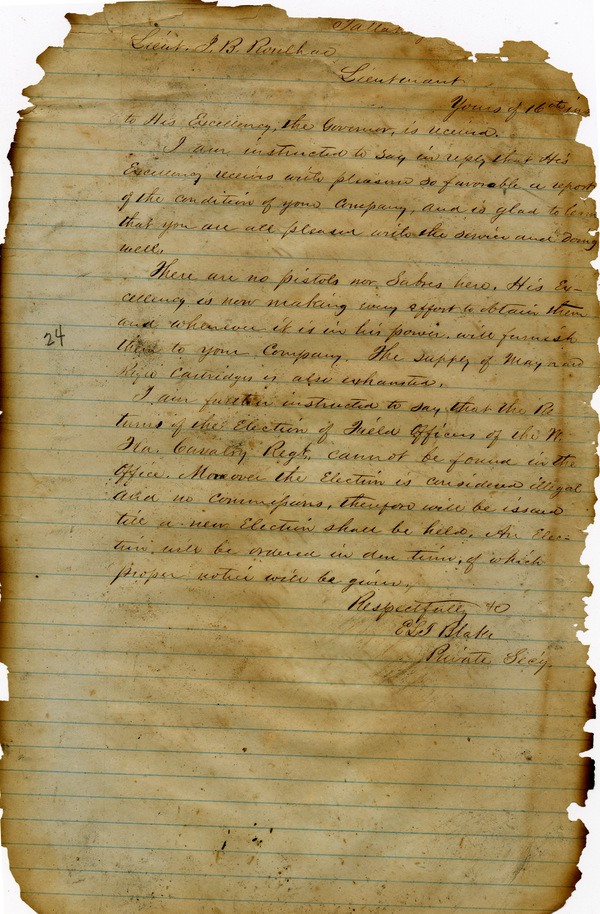 Tallah
Lieut. J. B. Roulhac
Lieutenant
Yours of 16th ins
to His Excellency, the Governor, is received.
I am instructed to say in reply that His
Excellency receives with pleasure so favorable a report
of the condition of your Company, and is glad to learn
that you are all pleased with the service and doing
well.
There are no pistols nor Sabres here. His Ex-
cellency is now making every effort to obtain them
and whenever it is in his power, will furnish
them to your Company. The supply of Maynard
Rifle Cartridges is also exhausted.
24
I am further instructed to say that the Re
turns of the Election of Field Officers of the
Fla. Cavalry Regt, cannot be found in the
Office. Moreover the Election is considered illegal
and no commissions, therefore will be issued
till a new Election shall be held. An Elec-
tion, will be ordered in due time, of which
proper notice will be given.
Respectfully &c
E L T Blake
Private Sec'y